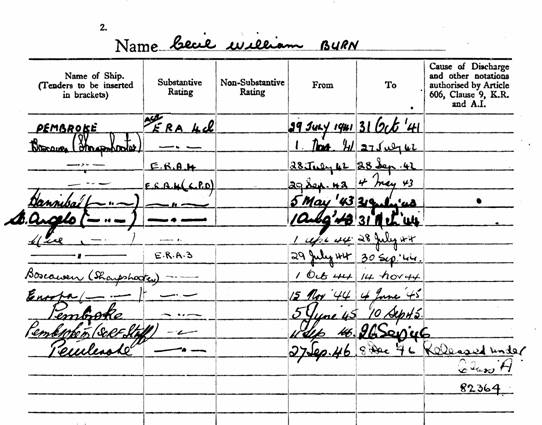 2.
Name Cecil William BURN
Name of Ship. (Tenders to be inserted in brackets) Substantive Rating Non-Substantive Rating From To Cause of Discharge and other notations authorised by Article 606, Clause 9, K.R. and A.I.
PEMBROKE E R A 4 cl 29 July 1941 31 Oct '41
Boscawen (Sharpshooter) —"— 1 Nov. 41 27 July 42
—"— E.R.A.4 28 July 42 28 Sep. 42
—"— 29 Sep. 42 4 May 43
Hannibal (—"—) —"— 5 May '43 31 July '43
St. Angelo (—"—) —"— 1 Aug '43 31 Mch '44
—"— 1 44 28 July 44
—"— E.R.A.3 29 July 44 30 Sep. 44.
Boscawen (Sharpshooter) —"— 1 Oct 44 14 Nov 44
(—"—) —"— 15 Nov '44 4 June '45
Pembroke —"— 5 June '45 10 Sep 45.
Pembroke 46. 26 Sep '46
Pembroke —"— 27 Sep. 46 8 Dec '46 Released under
Class A
82364